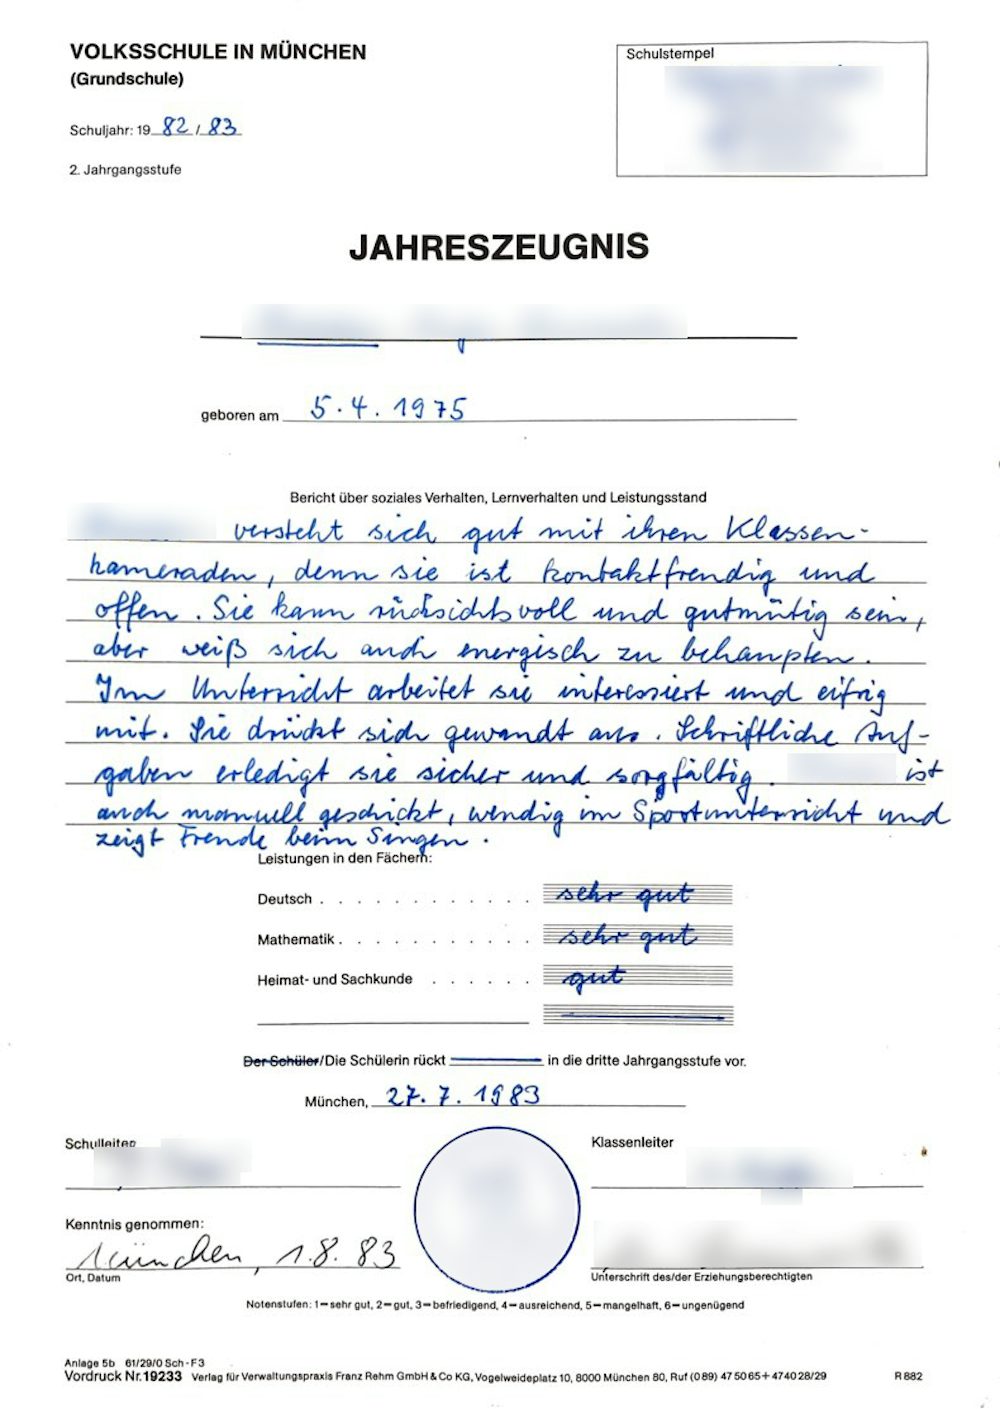 VOLKSSCHULE IN MÜNCHEN
(Grundschule)
Schulstempel
Schuljahr: 19 82 / 83
2. Jahrgangsstufe
JAHRESZEUGNIS
geboren am 5. 4. 1975
Bericht über soziales Verhalten, Lernverhalten und Leistungsstand
versteht sich gut mit ihren Klassen-
kameraden, denn sie ist kontaktfreudig und
offen. Sie kann rücksichtsvoll und gutmütig sein,
aber weiß sich auch energisch zu behaupten.
Im Unterricht arbeitet sie interessiert und eifrig
mit. Sie drückt sich gewandt aus. Schriftliche Auf-
gaben erledigt sie sicher und sorgfältig. ist
auch manuell geschickt, wendig im Sportunterricht und
zeigt Freude beim Singen.
Leistungen in den Fächern:
Deutsch . . . . . . . . . . . . sehr gut
Mathematik . . . . . . . . . . . sehr gut
Heimat- und Sachkunde . . . . . . gut
Der Schüler/Die Schülerin rückt in die dritte Jahrgangsstufe vor.
München, 27. 7. 1983
Schulleiter
Klassenleiter
Kenntnis genommen:
München, 1. 8. 83
Ort, Datum
Unterschrift des/der Erziehungsberechtigten
Notenstufen: 1 = sehr gut, 2 = gut, 3 = befriedigend, 4 = ausreichend, 5 = mangelhaft, 6 = ungenügend
Anlage 5b 61/29/0 Sch - F3
Vordruck Nr. 19233 Verlag für Verwaltungspraxis Franz Rehm GmbH & Co KG, Vogelweideplatz 10, 8000 München 80, Ruf (0 89) 47 50 65 + 47 40 28/29 R 882